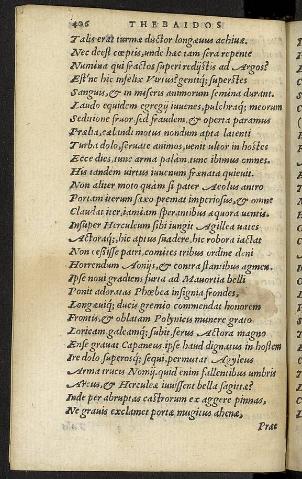 406 THEBAIDOS
Talis erat turmæ ductor longæuus achiuæ.
Nec deest cœptis, unde hæc tam sera repente
Numina qui fractos superi redijstis ad Argos?
Est'ne hic infelix Virtus? gentiq; superstes
Sanguis, & in miseris animorum semina durant.
Laudo equidem egregij iuuenes, pulchraq; meorum
Seditione fruor, sed fraudem, & operta paramus
Prælia, cælandi motus nondum apta latenti
Turba dolo, seruate animos, uenit ultor in hostes
Ecce dies, tunc arma palam, tunc ibimus omnes.
His tandem uirtus iuuenum frænata quieuit.
Non aliter moto quam si pater Aeolus antro
Portam iterum saxo premat imperiosus, & omne
Claudat iter, iamiam sperantibus æquora uentis.
Insuper Herculeum sibi iungit Agillea uates
Actoraq; hic aptus suadere, hic robora iactat
Non cessisse patri, comites tribus ordine deni
Horrendum Aonijs, & contra stantibus agmen.
Ipse noui gradiens furta ad Mauortia belli
Ponit adoratas Phœbea insignia frondes,
Longæuiq; ducis gremio commendat honorem
Frontis, & oblatam Polynicis munere grato
Loricam galeamq; subit, ferus Actora magno
Ense grauat Capaneus, ipse haud dignatus in hostem
Ire dolo superosq; sequi, permutat Agyleus
Arma trucis Nomij, quid enim fallentibus umbris
Arcus, & Herculeæ iuuissent bella sagittæ?
Inde per abruptas castrorum ex aggere pinnas,
Ne grauis exclamet portæ mugitus ahenæ,
Præ